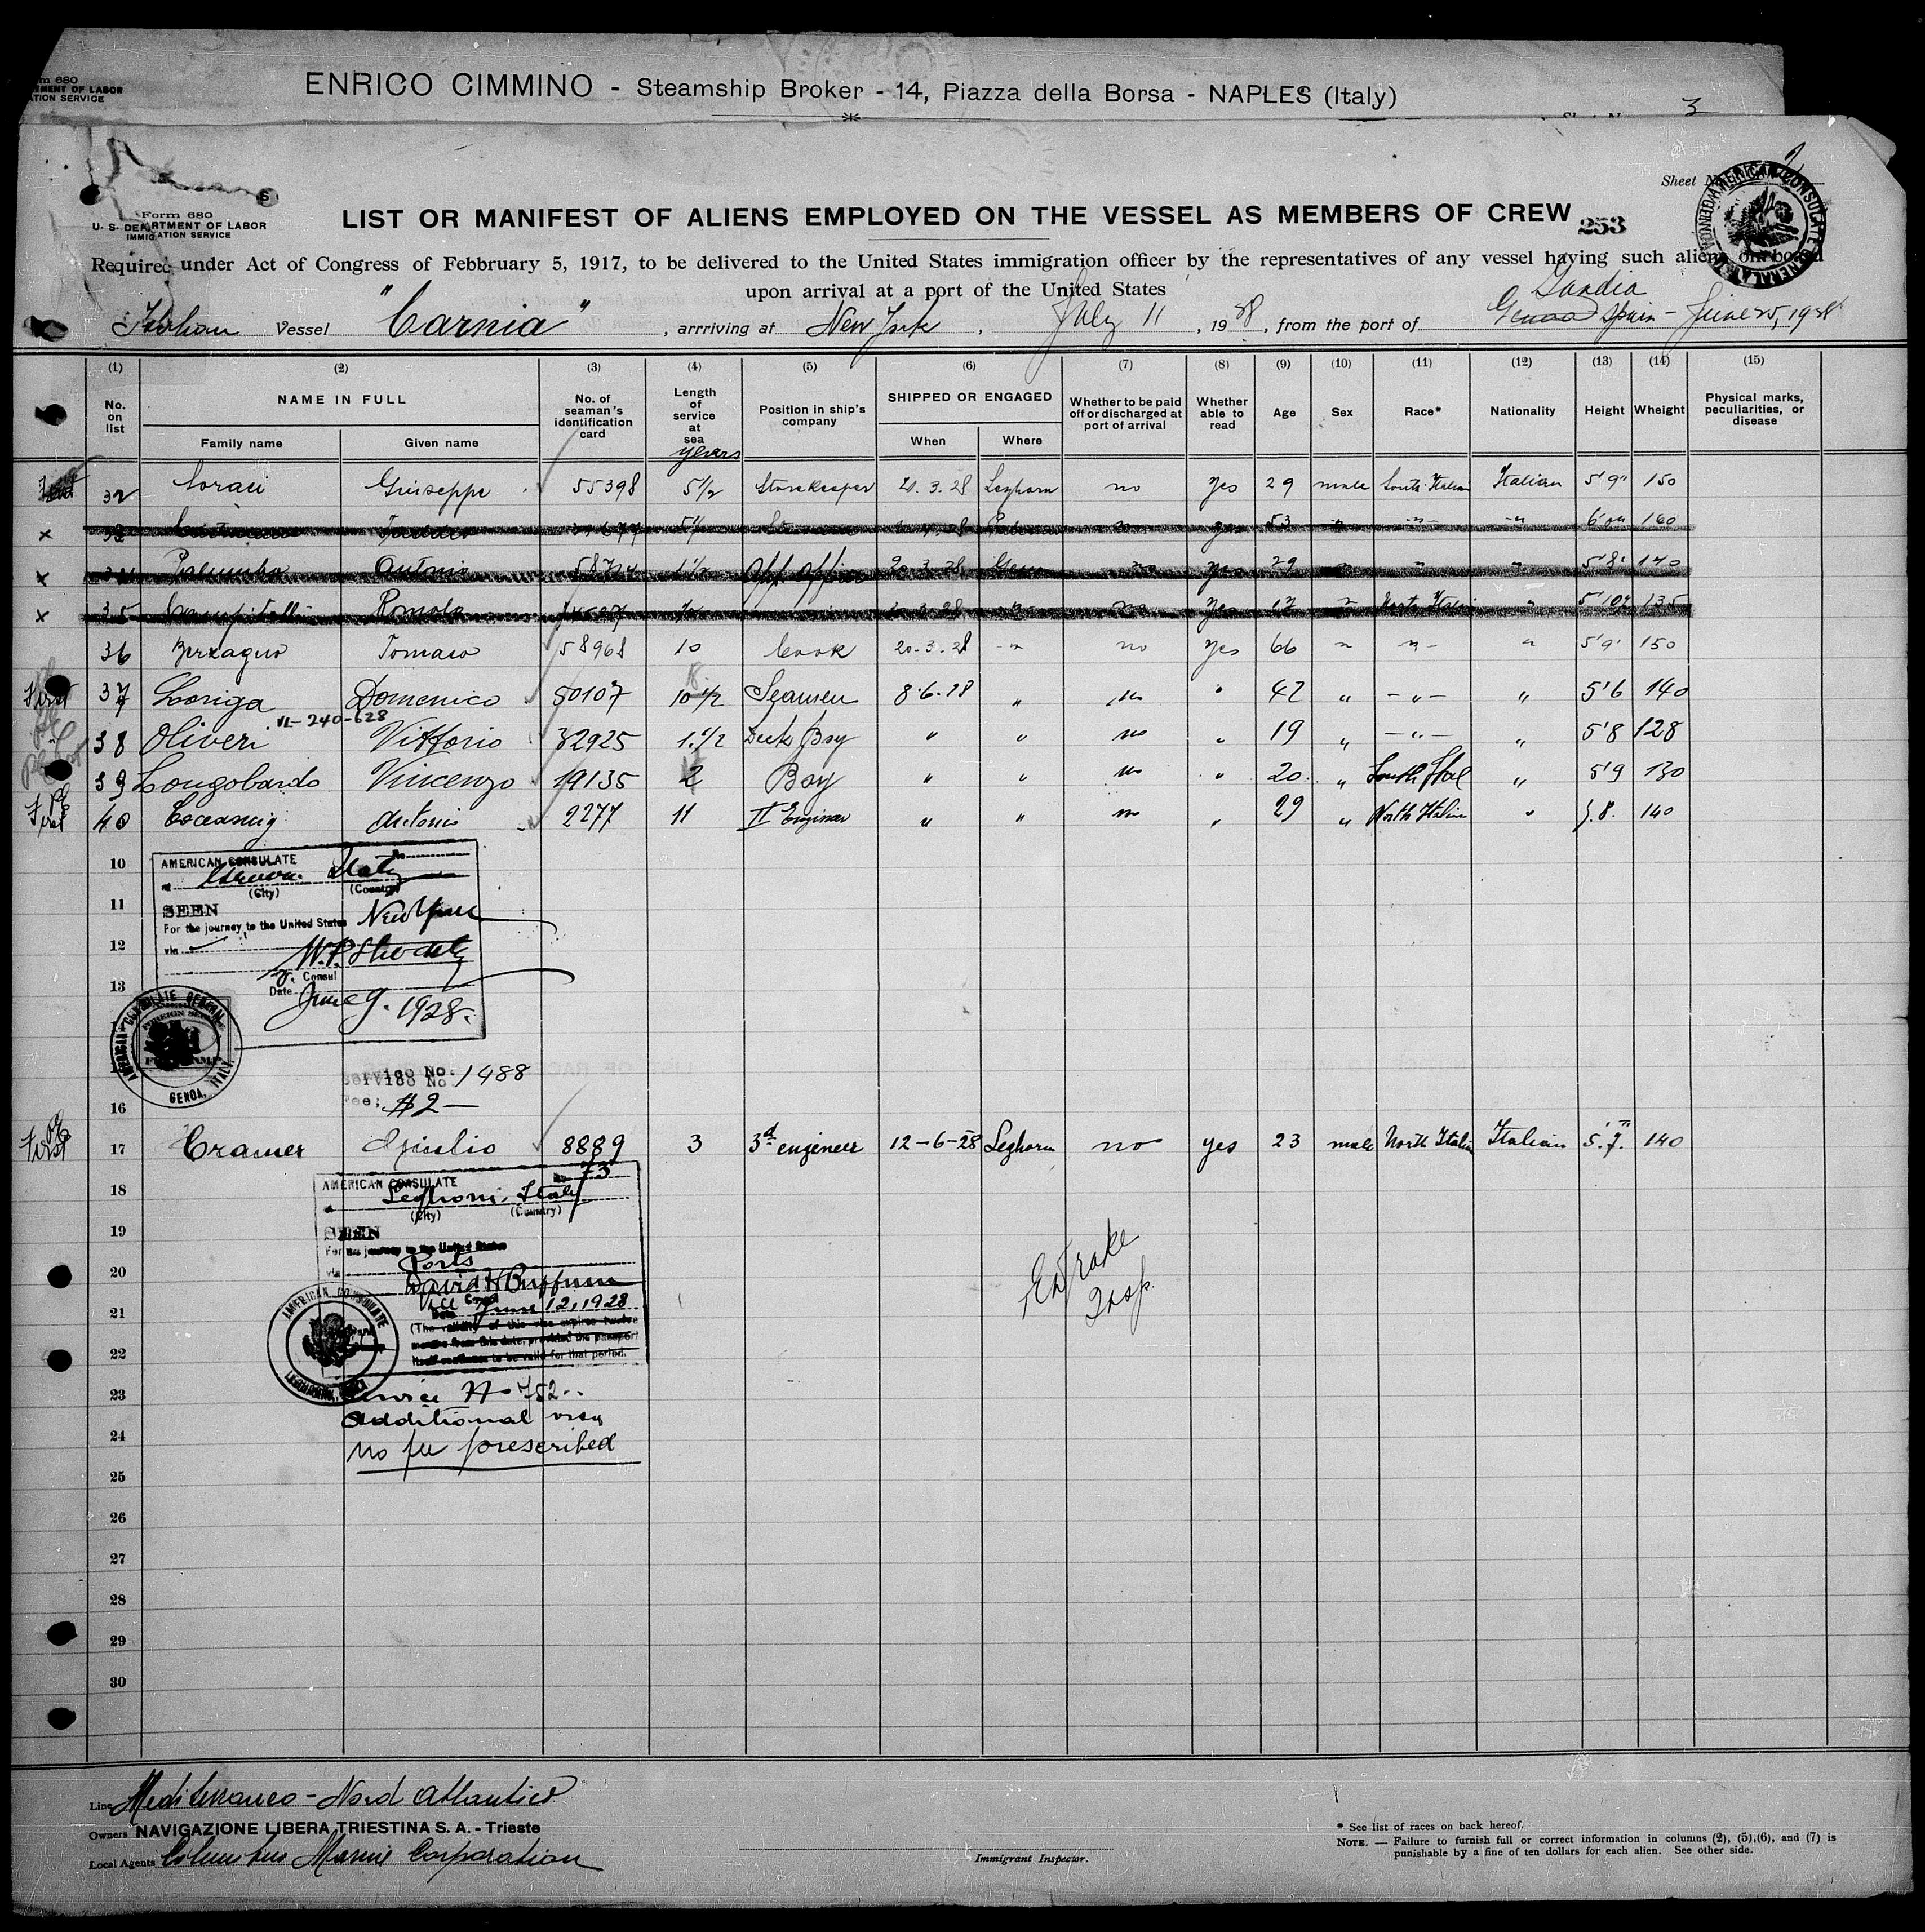 m 680
TMENT OF LABOR
ATION SERVICE
ENRICO CIMMINO - Steamship Broker - 14, Piazza della Borsa - NAPLES (Italy)
3
Sheet No 2
Form 680
U. S. DEPARTMENT OF LABOR
IMMIGRATION SERVICE
LIST OR MANIFEST OF ALIENS EMPLOYED ON THE VESSEL AS MEMBERS OF CREW 253
AMERICAN CONSULATE GENERAL GENOA
Required under Act of Congress of Febbruary 5, 1917, to be delivered to the United States immigration officer by the representatives of any vessel having such aliens on board
upon arrival at a port of the United States
Gandia
Italian Vessel "Carnia", arrriving at New York, July 11, 1928, from the port of Genoa Spain - June 25, 1928
(1) (2) (3) (4) (5) (6) (7) (8) (9) (10) (11) (12) (13) (14) (15)
No. on list NAME IN FULL Family name Given name No. of seaman's identification card Length of service at sea years Position in ship's company SHIPPED OR ENGAGED When Where Whether to be paid off or discharged at port of arrival Whether able to read Age Sex Race* Nationality Height Wheight Physical marks, peculiarities, or disease
32 Coraci Giuseppe 55398 5 1/2 Storekeeper 20.3.28 Leghorn no yes 29 male South Italian Italian 5'9" 150
x yes 53 " -"- -"- 160
x Palumbo Antonio 1 1/2 20.3.28 no yes 29 " " " 140
x 35 Romolo no yes North Italian " 5'10 135
36 Tomaso 58968 10 Cook 20.3.28 -" no yes 66 " "- " 5'9" 150
First 37 Loriga Domenico 50107 10 1/2 Seamen 8.6.28 " no " 42 " -"- " 5'6 140
38 Oliveri Vittorio 32925 1.1/2 Deck Boy " " no " 19 " -"- " 5'8 128
39 Longobardo Vincenzo 19135 2 Boy " " no " 20. " South Ital " 5'9 130
First 40 Antonio 2277 11 II Engineer " " no " 29 " North Italian " 5.8. 140
10
AMERICAN CONSULATE No
at Genoa Italy
(City) (Country)
11
SEEN
For the journey to the United States New York
12
via
Consul
13
Date June 9. 1928.
AMERICAN CONSULATE GENERAL GENOA, ITALY.
FOREIGN SERVICE
Service No. 1488
Fee; $2 —
16
First 17 Cramer Giulio 8889 3 3d engineer 12-6-28 Leghorn no yes 23 male North Italian Italian 5.7. 140
AMERICAN CONSULATE No 73
18
at Leghorn, Italy
(City) (Country)
19
SEEN
For the journey to the United States
20
via Ports
David H Buffum
Vice Consul
21
Date June 12, 1928
(The validity of this visa expires twelve
months from this date, provided the passport
22
itself continues to be valid for that period.
AMERICAN CONSULATE
23
Service No 752..
Additional visa
24
no fee prescribed
25
26
27
28
29
30
Line Mediterraneo - Nord Atlantico
Owners NAVIGAZIONE LIBERA TRIESTINA S. A. - Trieste
Local Agents Columbus Marine Corporation
Immigrant Inspector.
* See list of races on back hereof.
NOTE. — Failure to furnish full or correct information in columns (2), (5),(6), and (7) is
punishable by a fine of ten dollars for each alien. See other side.